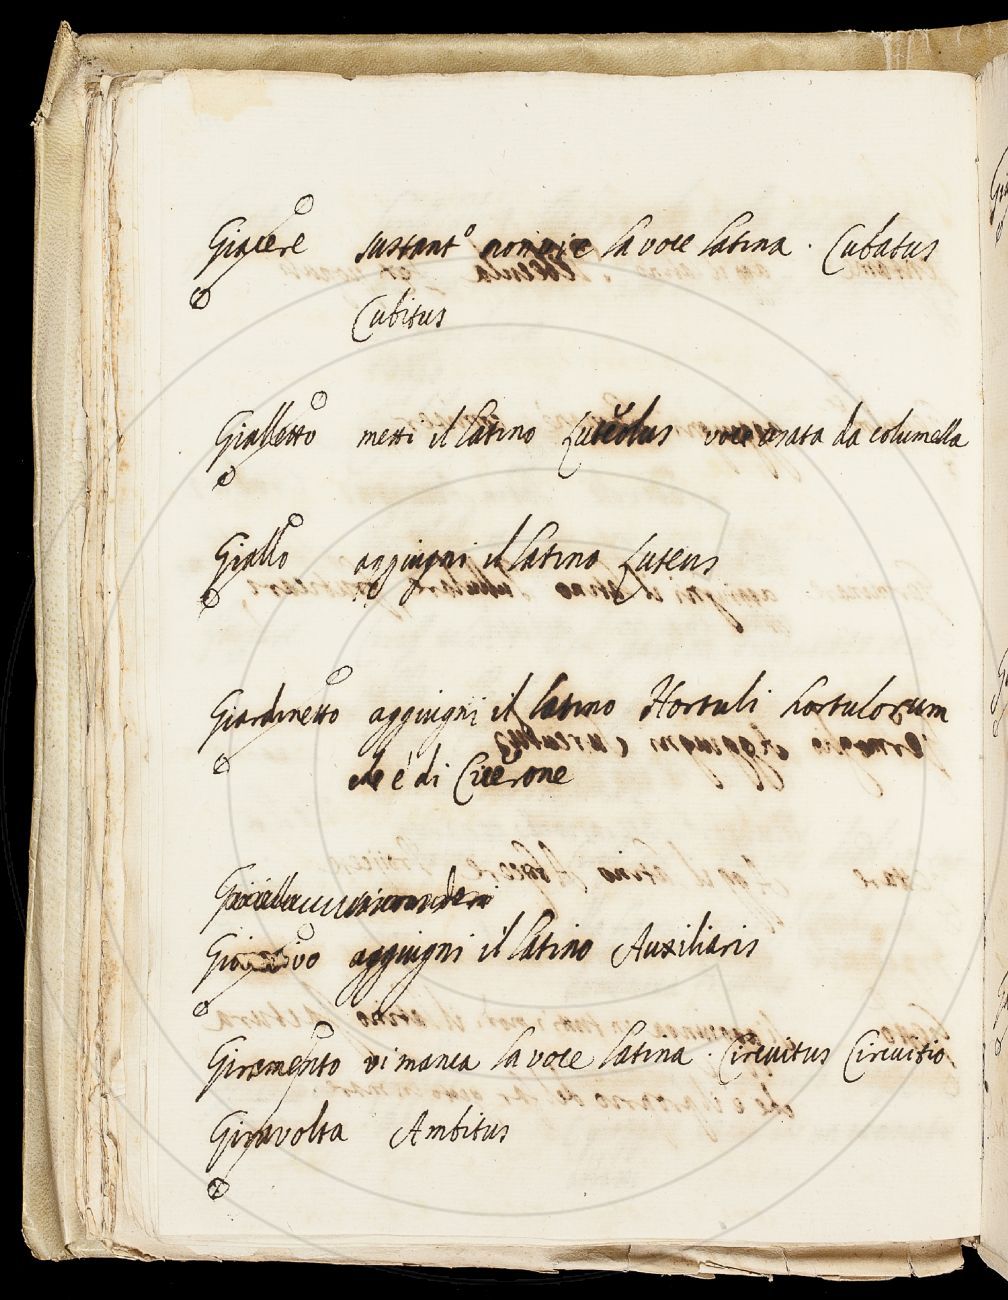 Giacere sustant.o non vi è la voce latina. Cubatus
Cubitus
Gialletto metti il latino Lutĕolus voce usata da columella
Giallo aggiugni il latino Luteus
Giardinetto aggiugni il latino Hortuli hortulorum
che é di Cicerone
aggiugni il latino Auxiliaris
Giramento vi manca la voce latina. Circuitus Circuitio
Giravolta Ambitus